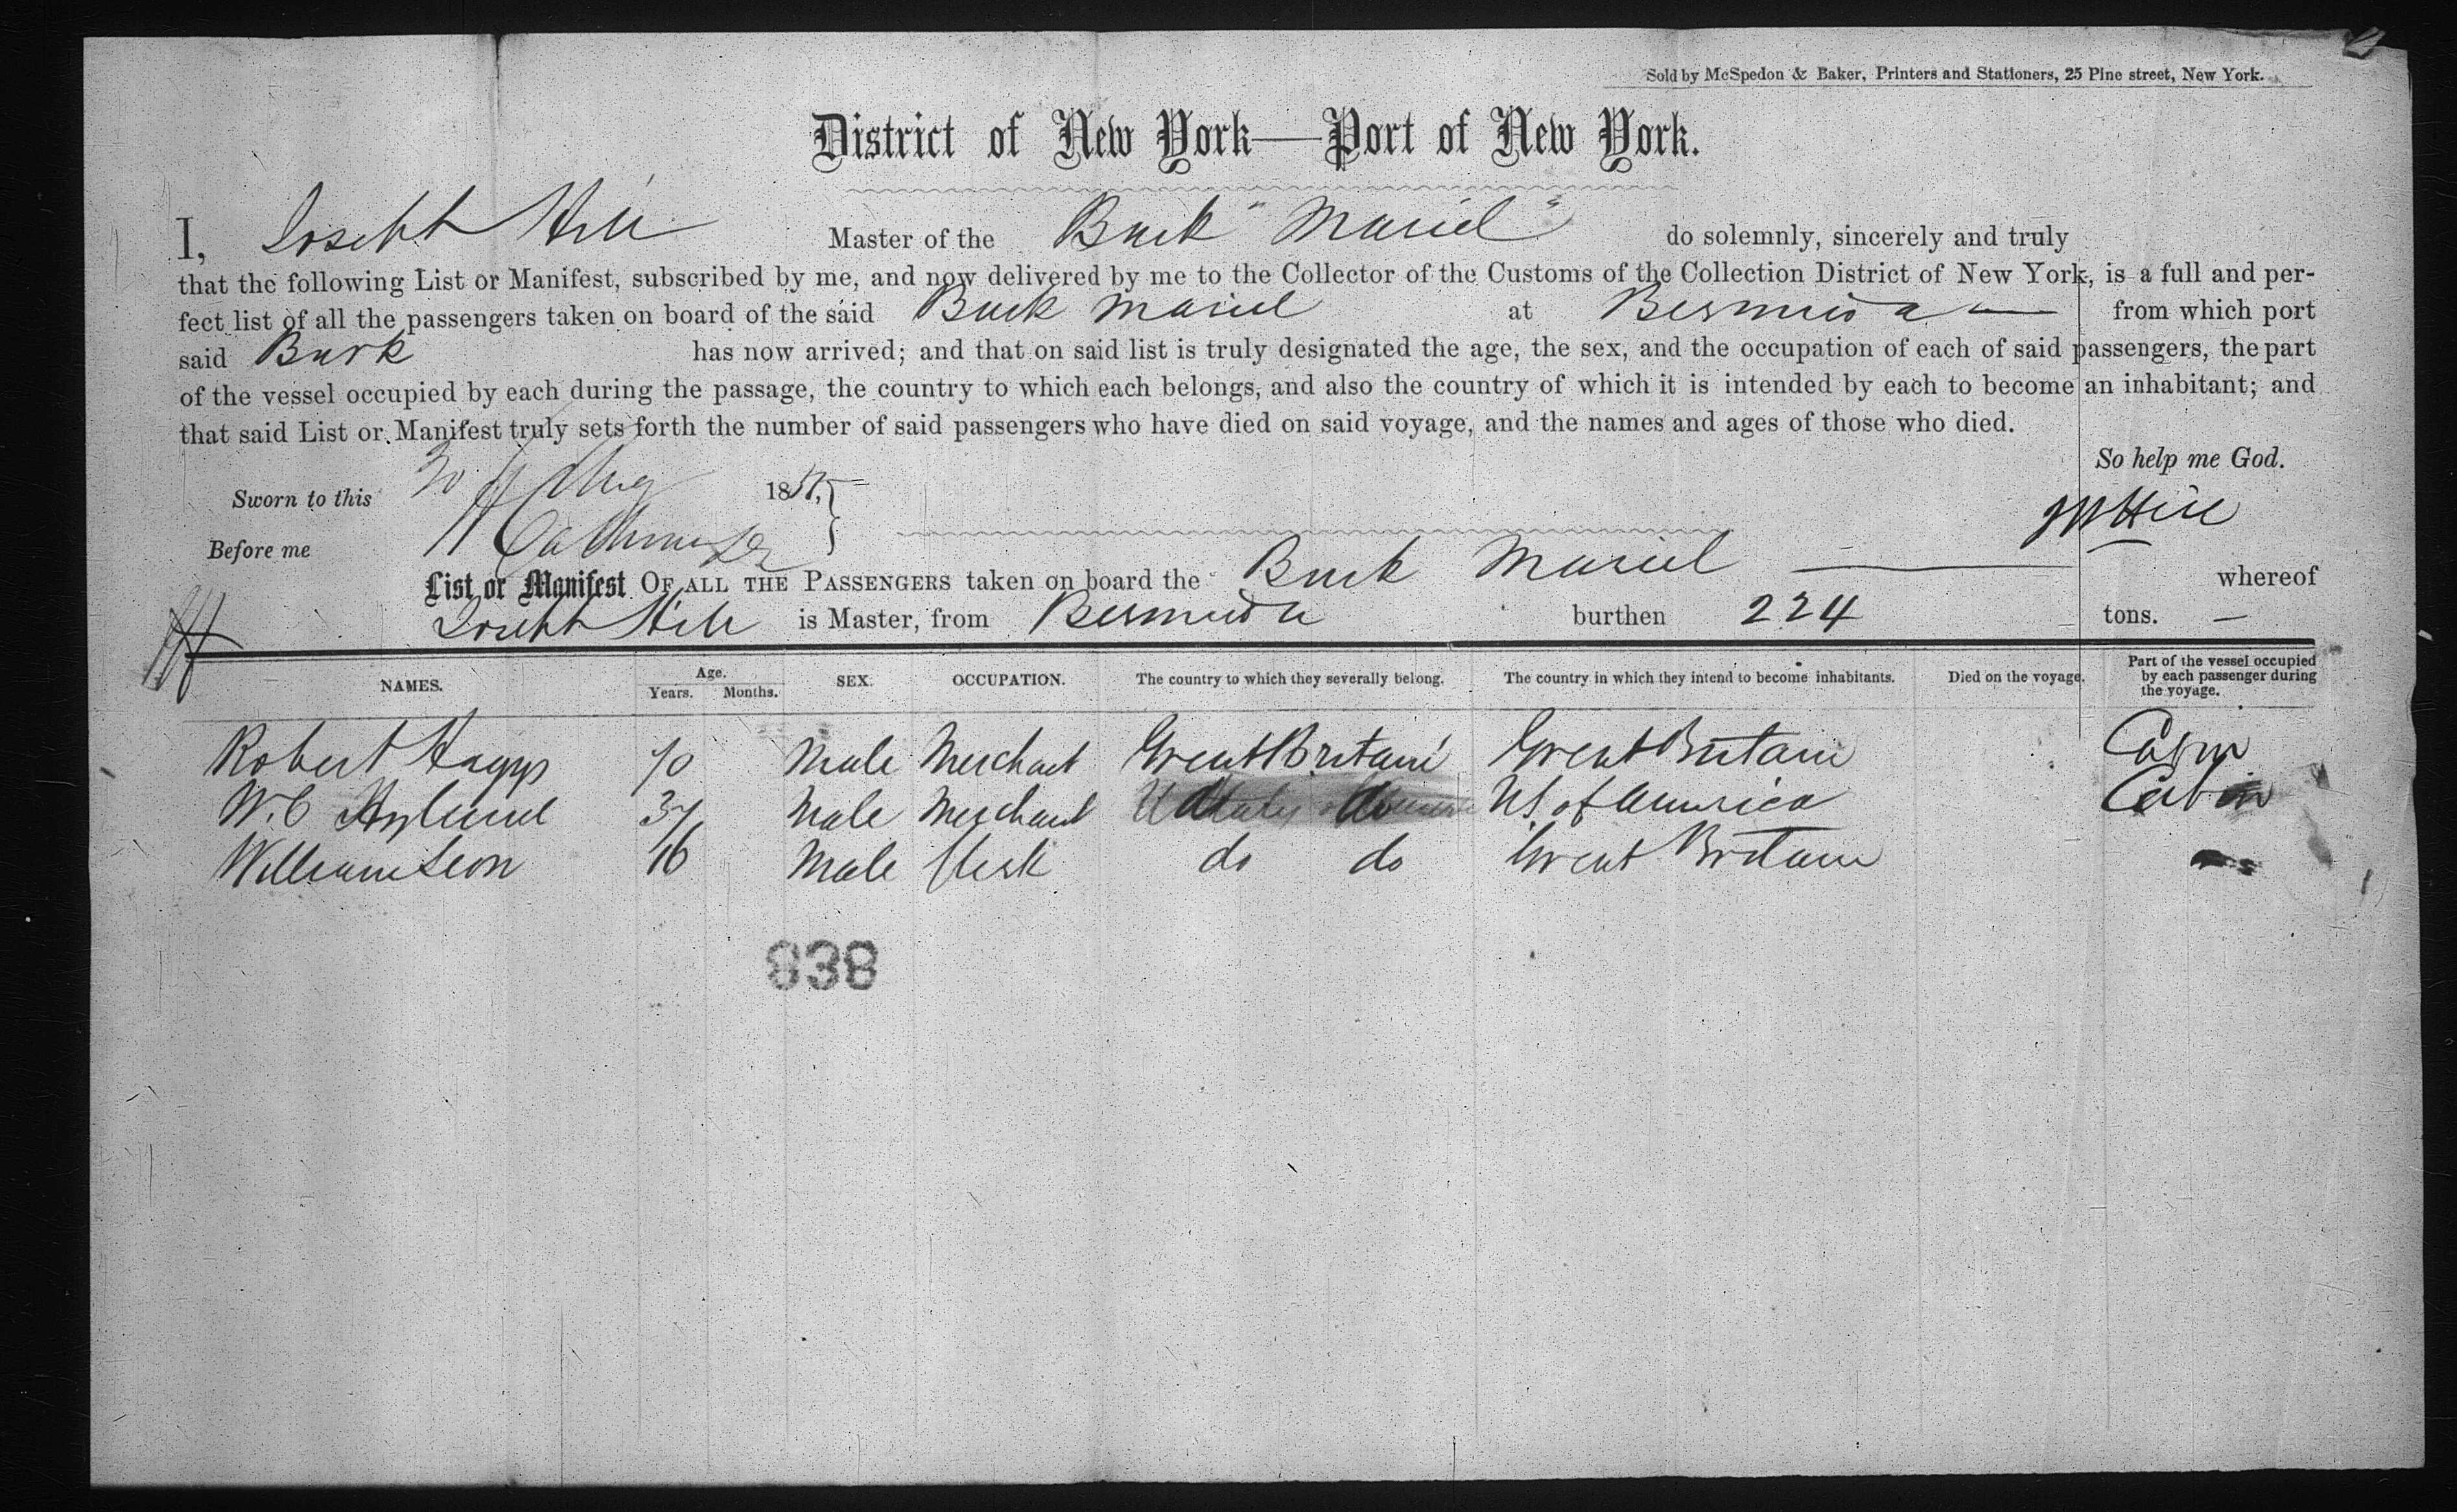 Sold by McSpedon & Baker, Printers and Stationers, 25 Pine street, New York.
District of New York—Port of New York.
I, Joseph Hill Master of the Bark "Mariel" do solemnly, sincerely and truly
that the following List or Manifest, subscribed by me, and now delivered by me to the Collector of the Customs of the Collection District of New York, is a full and per-
fect list of all the passengers taken on board of the said Bark Mariel at Bermuda from which port
said Bark has now arrived; and that on said list is truly designated the age, the sex, and the occupation of each of said passengers, the part
of the vessel occupied by each during the passage, the country to which each belongs, and also the country of which it is intended by each to become an inhabitant; and
that said List or Manifest truly sets forth the number of said passengers who have died on said voyage, and the names and ages of those who died.
So help me God.
Sworn to this Aug 185
Before me
Hill
List or Manifest OF ALL THE PASSENGERS taken on board the Bark Mariel whereof
Joseph Hill is Master, from Bermuda burthen 224 tons.
NAMES. Age. Years. Months. SEX. OCCUPATION. The country to which they severally belong. The country in which they intend to become inhabitants. Died on the voyage. Part of the vessel occupied by each passenger during the voyage.
Robert Male Merchant Great Britain Great Britain Cabin
W. C 37 Male Merchant do do U.S. of America Cabin
William 16 Male Clerk do do Great Britain
838